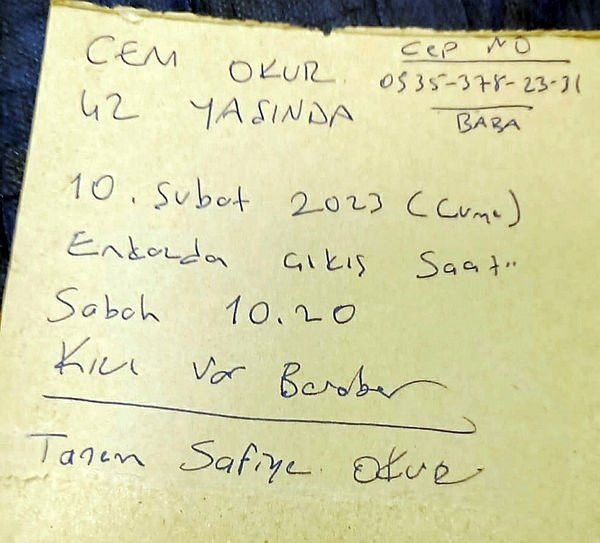 CEM OKUR
42 YASINDA
CEP NO
0535-378-23-31
BABA
10. Subat 2023 (Cuma)
Enkazda çıkış Saati
Sabah 10.20
Kızı Var Beraber
Tanem Safiye OKUR